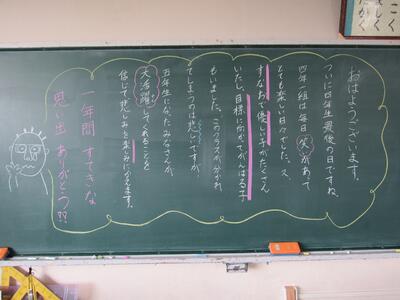 おはようございます。
ついに四年生最後の日ですね。
四年一組は毎日笑があって
とても楽しい日々でした。
すなおで優しい子がたくさん
いたし、目標に向かってがんばる子
もいました。このクラスが分かれ
てしまうのは悲しいですが
五年生になったみなさんが
大活躍してくれることを
信じて悲しみを楽しみにかえます。
一年間すてきな
思い出ありがとう!!